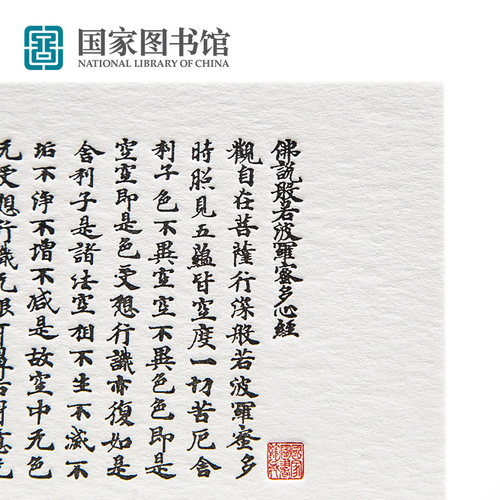 国家图书馆
NATIONAL LIBRARY OF CHINA
佛說般若波羅蜜多心經
觀自在菩薩行深般若波羅蜜多
時照見五蘊皆空度一切苦厄舍
利子色不異空空不異色色即是
空空即是色受想行識亦復如是
舍利子是諸法空相不生不滅不
垢不淨不增不减是故空中无色
无受想行識无眼耳鼻舌身意无